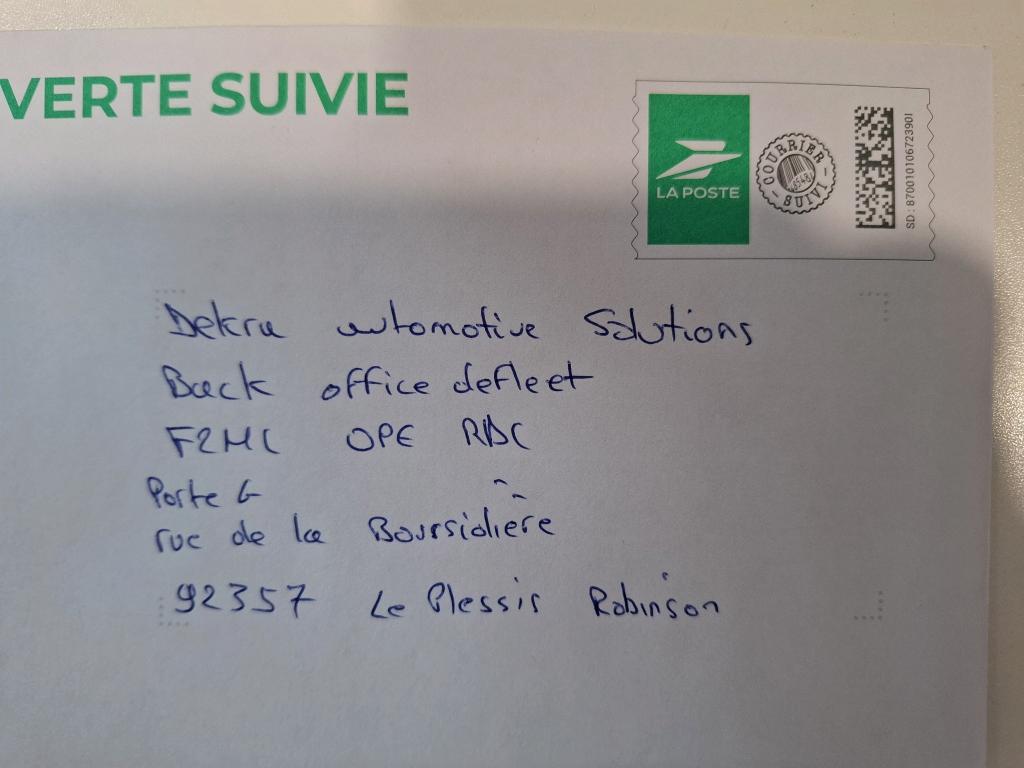 VERTE SUIVIE
LA POSTE
COURRIER SUIVI
SD : 87001010672390I
Dekra automotive Solutions
Back office defleet
F2MC OPE RDC
Porte G
rue de la Boursidiere
92357 Le Plessis Robinson